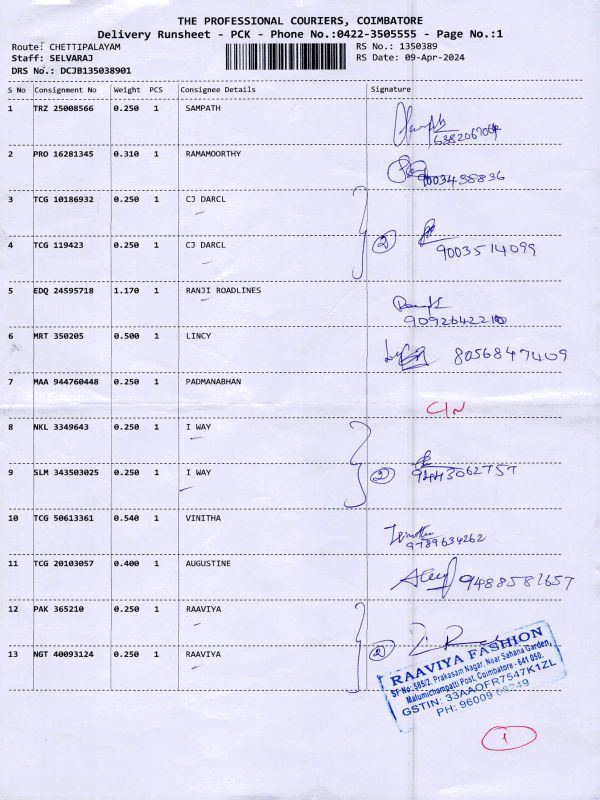 THE PROFESSIONAL COURIERS, COIMBATORE
Delivery Runsheet - PCK - Phone No.:0422-3505555 - Page No.:1
Route: CHETTIPALAYAM RS No.: 1350389
Staff: SELVARAJ RS Date: 09-Apr-2024
DRS No.: DCJB135038901
S No Consignment No Weight PCS Consignee Details Signature
1 TRZ 25008566 0.250 1 SAMPATH
2 PRO 16281345 0.310 1 RAMAMOORTHY
9003438836
3 TCG 10186932 0.250 1 CJ DARCL
4 TCG 119423 0.250 1 CJ DARCL 2
9003514099
5 EDQ 24595718 1.170 1 RANJI ROADLINES
6 MRT 350205 0.500 1 LINCY 8056847409
7 MAA 944760448 0.250 1 PADMANABHAN
C/N
8 NKL 3349643 0.250 1 I WAY
9 SLM 343503025 0.250 1 I WAY 2 9443062757
10 TCG 50613361 0.540 1 VINITHA
9789634262
11 TCG 20103057 0.400 1 AUGUSTINE
9488581657
12 PAK 365210 0.250 1 RAAVIYA
13 NGT 40093124 0.250 1 RAAVIYA 2
RAAVIYA FASHION
SF No: 585/2, Prakasam Nagar, Near Sahana Garden,
Malumichampatti Post, Coimbatore - 641 050.
GSTIN: 33AAOFR7547K1ZL
PH: 96009 68249
1